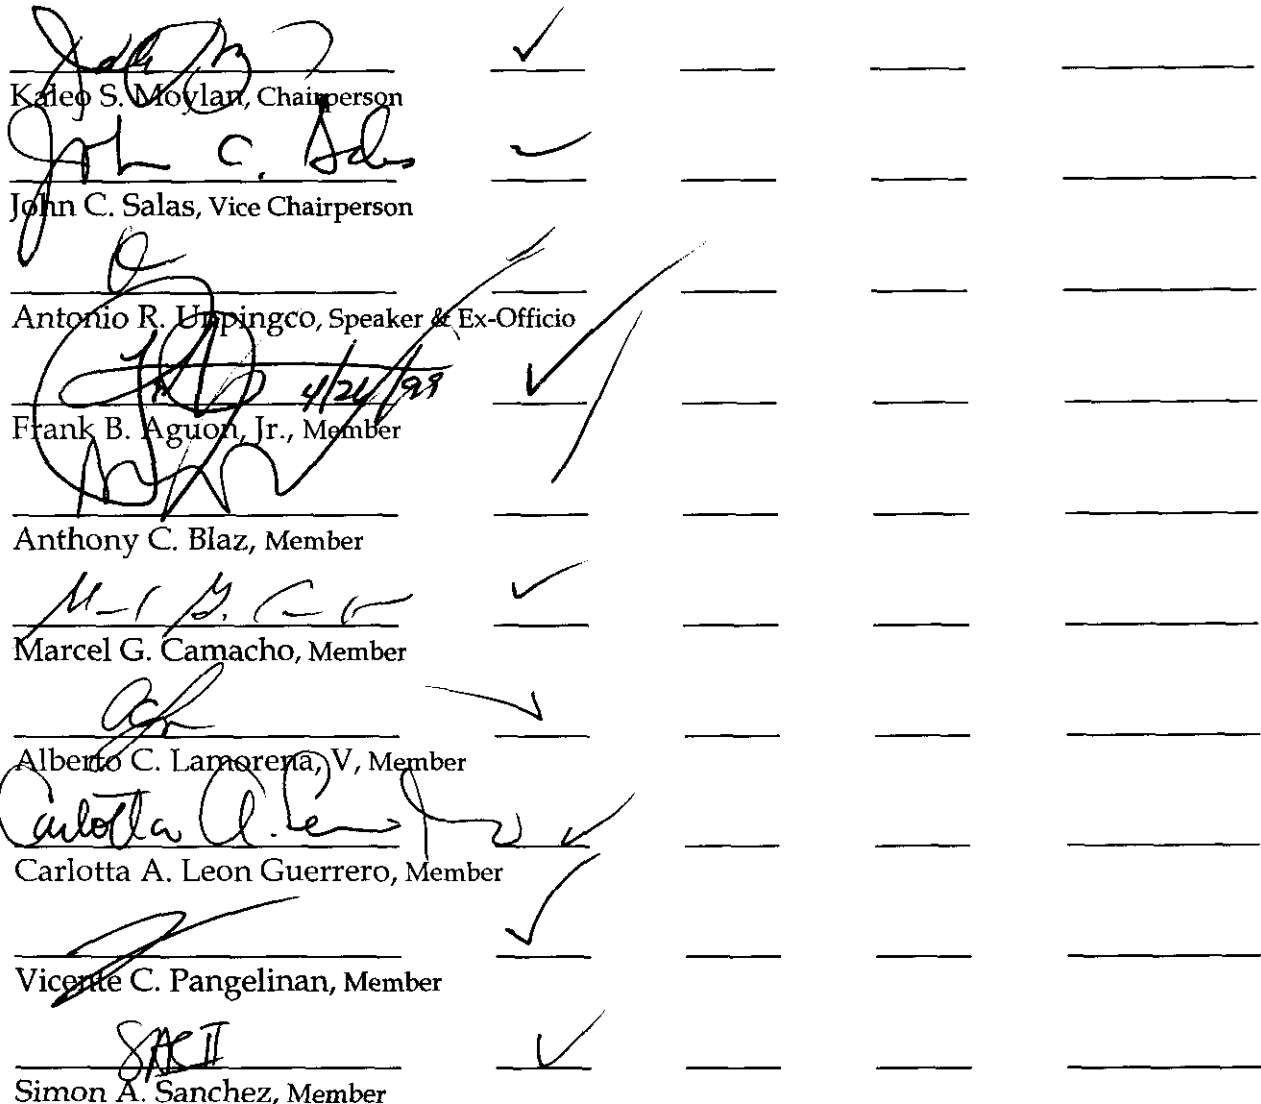 Kaleo S. Moylan, Chairperson
John C. Salas
John C. Salas, Vice Chairperson
Antonio R. Unpingco, Speaker & Ex-Officio
Frank B. Aguon, Jr., Member
Anthony C. Blaz, Member
Marcel G. Camacho, Member
Alberto C. Lamorena, V, Member
Carlotta A. Leon Guerrero
Carlotta A. Leon Guerrero, Member
Vicente C. Pangelinan, Member
SACII
Simon A. Sanchez, Member